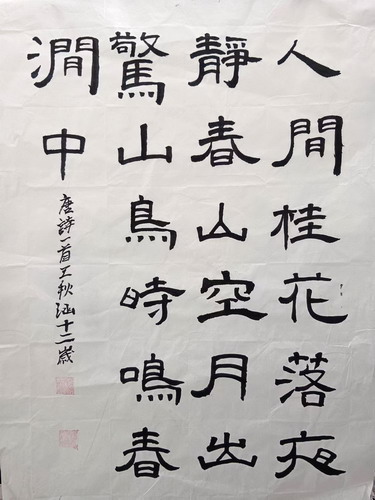 人間桂花落夜
靜春山空月出
驚山鳥時鳴春
澗中
唐詩一首王秋涵十二歲